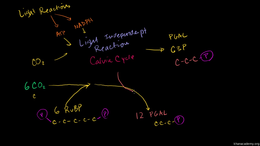 Light Reactions
ATP NADPH
Light Independent
Reaction
Calvin Cycle
CO₂
PGAL
G3P
C-C-C-P
6CO₂
C
6 RuBP
P-C-C-C-C-C-P
12 PGAL
C-C-C-P
khanacademy.org